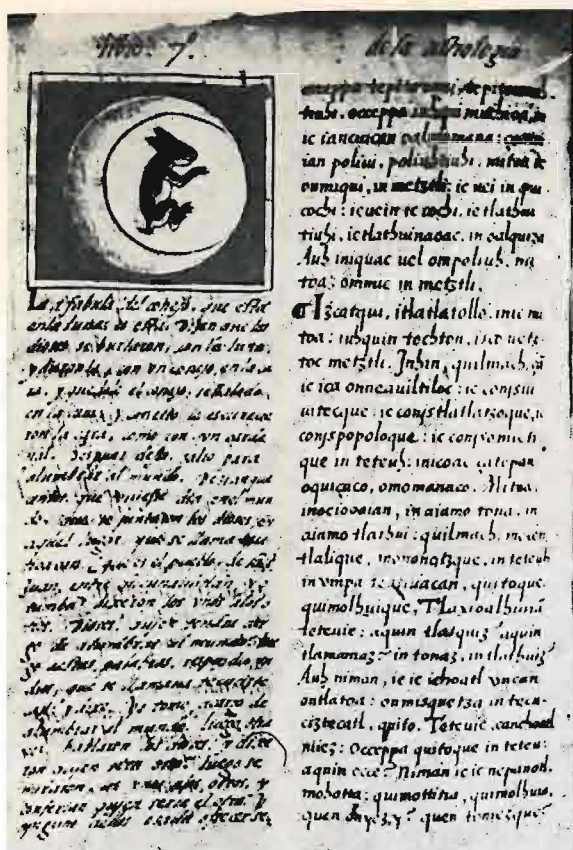 libro. 7º.
de la astrologia
La fabula del conejo, que esta
en la luna es esta. Dizen que los
dioses se burlaron, con la luna,
y dieronla, con vn conejo, en la ca
ra. y quedole el conejo, señalado,
en la cara, y con esto le escurecie
ron la cara, como con vn carde
nal. Despues desto, salio para
alumbrar al mundo. Dezian que
antes, que vuiesse dia en el mun
do, que se juntaron los dioses, en
aquel lugar, que se llama teu
tioacan, que es el pueblo, de sant
juan, entre chicunauhtlan, y o
tumba: dixeron los vnos a los o
tros. Dioses, quien tendra car
go de alumbrar al mundo:
a estas palabras, respondio, vn
dios, que se llamaua tecuciztecatl,
y dixo. Yo tomo cargo de
alumbrar al mundo. luego otra
vez, hablaron los dioses, y dixe
ron quien sera otro? luego se
miraron, los vnos a los otros, y
conferian quien seria el otro. y
ninguno dellos osaua ofrecerse
occeppa tepitonauh, tepitonauh
tiuh. occeppa iuhqui muchioa, in
ic iancuican oalmomana:
ian poliui, poliuhtiuh. mitoa ie
onmiqui, in metztli: ie uei in qui
cochi: ie uei in ic cochi, ie tlathui
tiuh, ie tlathuinaoac. in oalquiza
Auh iniquac uel ompoliuh. mi
toa: ommic in metztli.
¶ Izcatqui, itlatlatollo. inic mi
toa: iuhquin tochton, ixco uetz
toc metztli. Inhin, quilmach, çã
ic ica onneauiltiloc: ic conixui
uitecque. ic conistlatlatzoque, ic
conixpopoloque: ic conixomicti
que in teteuh: inicoac çatepan
oquiçaco, omomanaco. Mitoa,
inocioovaian, in aiamo tona. in
aiamo tlathui: quilmach, mocen
tlalique, mononotzque. in teteuh
in vmpa teutiuacan, quitoque.
quimolhuique, Tlaxioalhuiuiã
teteuie: aquin tlatquiz? aquin
tlamamaz? in tonaz, in tlathuiz?
Auh niman, ie ie iehoatl vncan
ontlatoa: onmixquetza in tecu
ciztecatl, quito. Teteuie, ca nehoatl
niiez: Occeppa quitoque in teteu:
aquin occe? Niman ie ic nepanotl.
mohotta: quimottitia, quimolhuia,
quen onyez, y? quen toniezque?